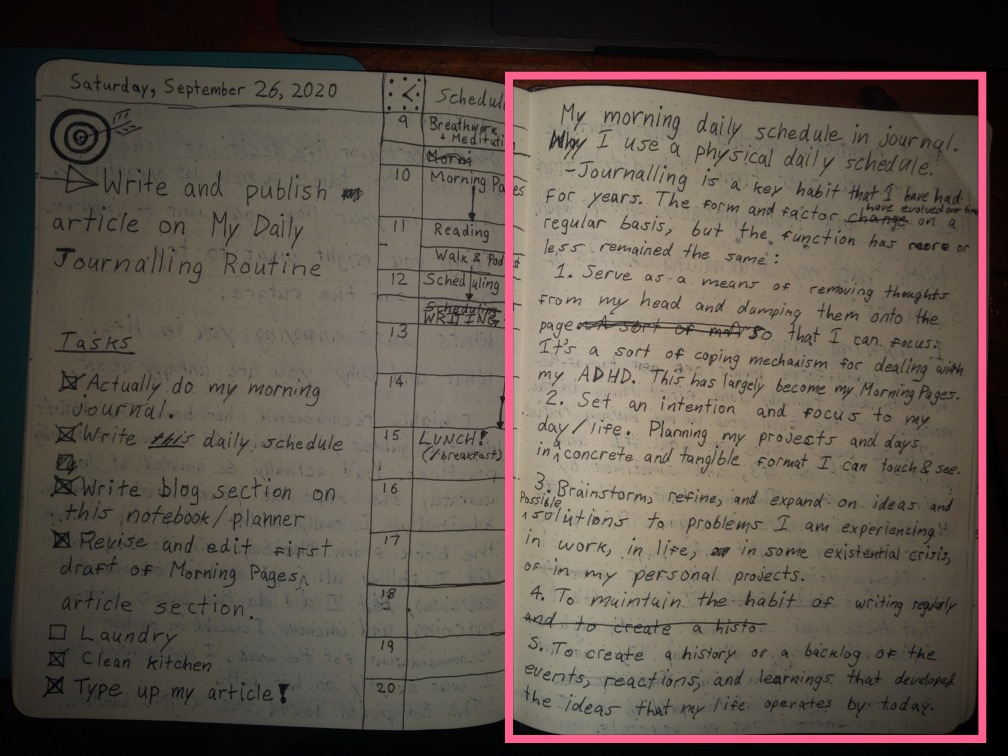 Saturday, September 26, 2020
Write and publish
article on My Daily
Journalling Routine
Tasks
Actually do my morning
journal.
Write this daily schedule
Write blog section on
this notebook/planner
Revise and edit first
draft of Morning Pages
article section.
Laundry
Clean kitchen
Type up my article!
Schedul
9 Breathwork
+ Meditati
Morni
10 Morning Pages
11 Reading
Walk & Pod st
12 Scheduling
Scheduling
WRITING
13
14
15 LUNCH!
(/breakfast)
16
17
18
19
20
My morning daily schedule in journal.
Why I use a physical daily schedule.
-Journalling is a key habit that I have had
for years. The form and factor change have evolved over time on a
regular basis, but the function has more or
less remained the same:
1. Serve as a means of removing thoughts
from my head and dumping them onto the
page. A sort of so that I can focus.
It's a sort of coping mechanism for dealing with
my ADHD. This has largely become my Morning Pages.
2. Set an intention and focus to my
day/life. Planning my projects and days
in concrete and tangible format I can touch & see.
3. Brainstorm, refine, and expand on ideas and
possible solutions to problems I am experiencing
in work, in life, in some existential crisis,
or in my personal projects.
4. To maintain the habit of writing regularly
and to create a histo
5. To create a history or a backlog of the
events, reactions, and learnings that developed
the ideas that my life operates by today.